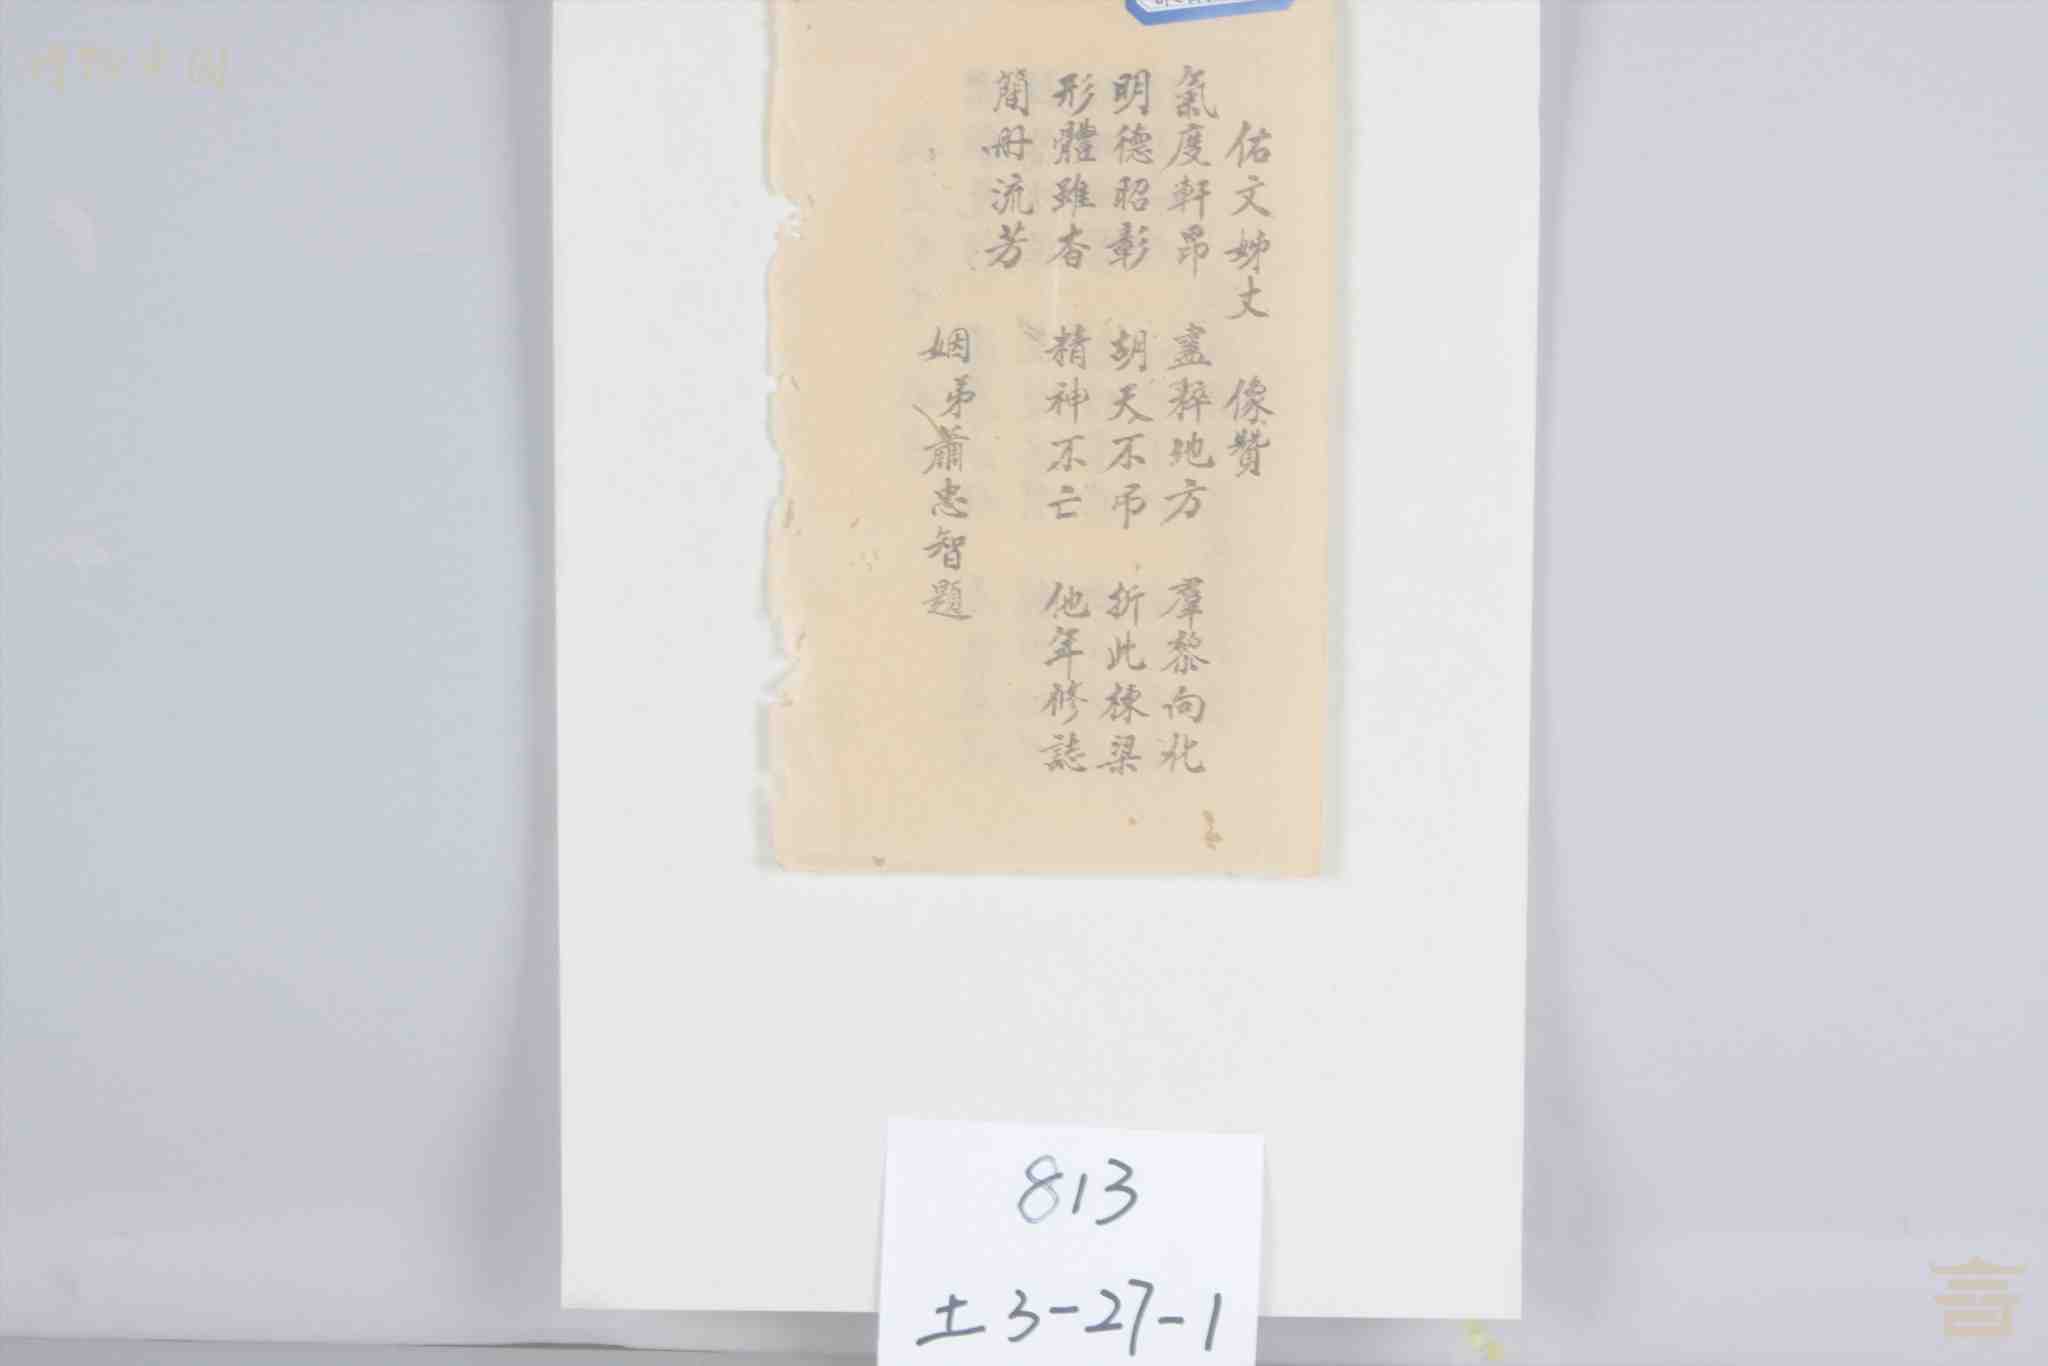 佑文姊丈 像贊
氣度軒昂 盡粹地方 羣黎向化
明德昭彰 胡天不弔 折此棟梁
形體雖杳 精神不亡 他年修誌
簡冊流芳
姻弟蕭忠智題
813
土3-27-1